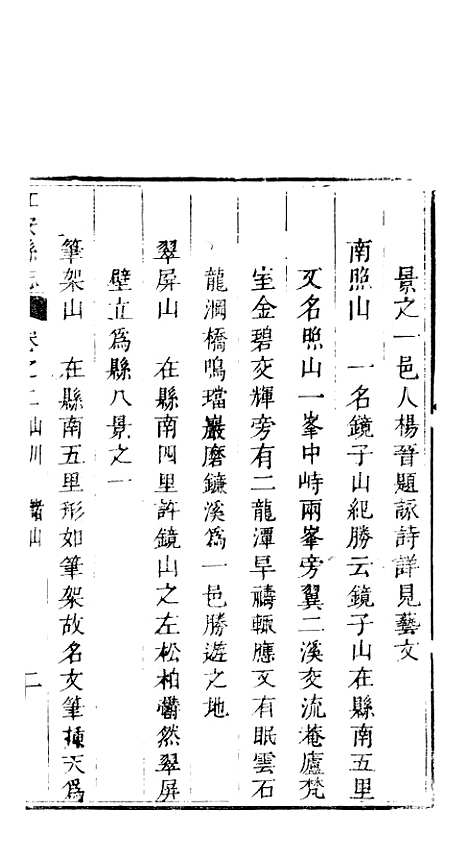 景之一邑人楊晉題詠詩詳見藝文
南照山　一名鏡子山紀勝云鏡子山在縣南五里
又名照山一峯中峙兩峯旁翼二溪交流菴廬梵
室金碧交輝旁有二龍潭旱禱輒應又有眠雲石
龍澗橋鳴璫巖磨鐮溪爲一邑勝遊之地
翠屏山　在縣南四里許鏡山之左松柏鬱然翠屏
壁立爲縣八景之一
筆架山　在縣南五里形如筆架故名文筆插天爲
縣志　卷之二山川　諸山　二